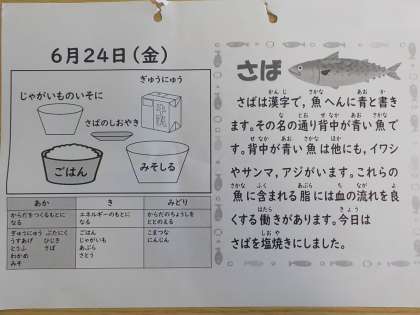 6月24日(金)
ぎゅうにゅう
じゃがいものいそに
さばのしおやき
ごはん
みそしる
あか き みどり
からだをつくるもとに
なる
エネルギーのもとに
なる
からだのちょうしを
ととのえる
ぎゅうにゅう ぶたにく
うすあげ ひじき
とうふ さば
わかめ
みそ
ごはん
じゃがいも
あぶら
さとう
こまつな
にんじん
さば
さばは漢字で,魚へんに青と書き
ます。その名の通り背中が青い魚で
す。背中が青い魚は他にも,イワシ
やサンマ,アジがいます。これらの
魚に含まれる脂には血の流れを良
くする働きがあります。今日は
さばを塩焼きにしました。